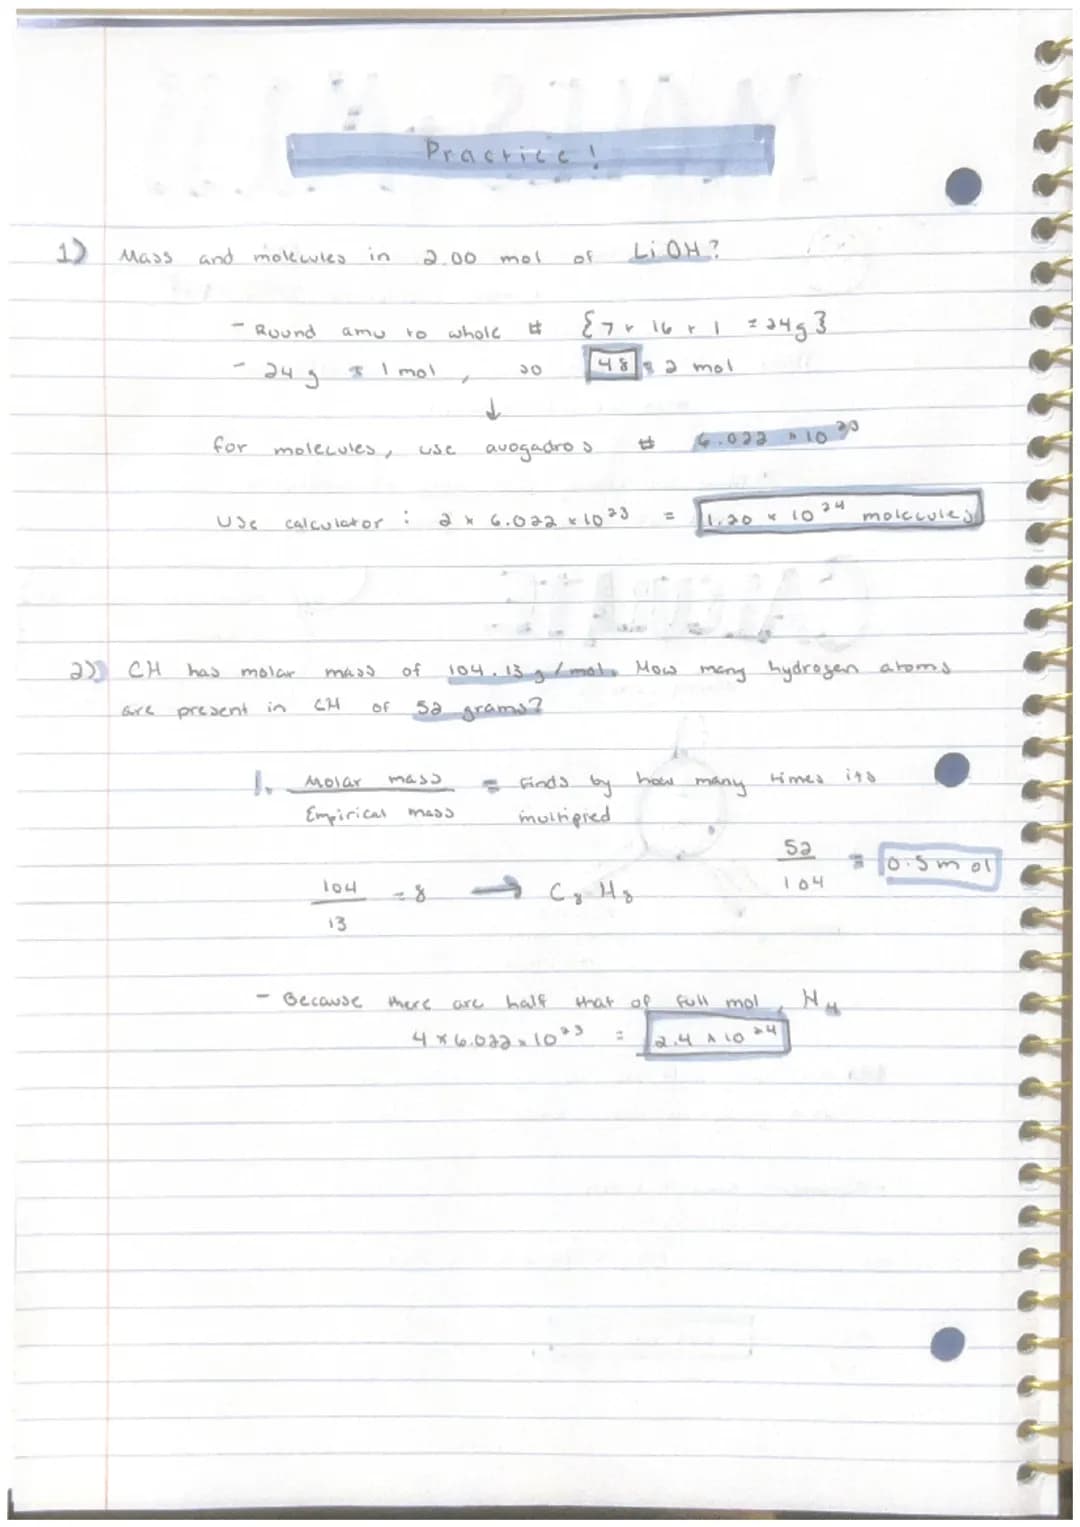 Practice!
1) Mass and molecules in 2.00 mol of LiOH?
- Round amu to whole # {7 + 16 + 1 = 24g}
- 24 g = 1 mol, so 48 = 2 mol
↓
for molecules, use avogadros # 6.022 x 10²³
Use calculator : 2 x 6.022 x 10²³ = 1.20 x 10²⁴ molecules
2) CH has molar mass of 104.13 g/mol. How many hydrogen atoms
are present in CH of 52 grams?
1. Molar mass = finds by how many times its
Empirical mass multipied
52 = 0.5 mol
104
104 = 8 → C₈ H₈
13
- Because there are half that of full mol, H₄
4 x 6.022 x 10²³ = 2.4 x 10²⁴